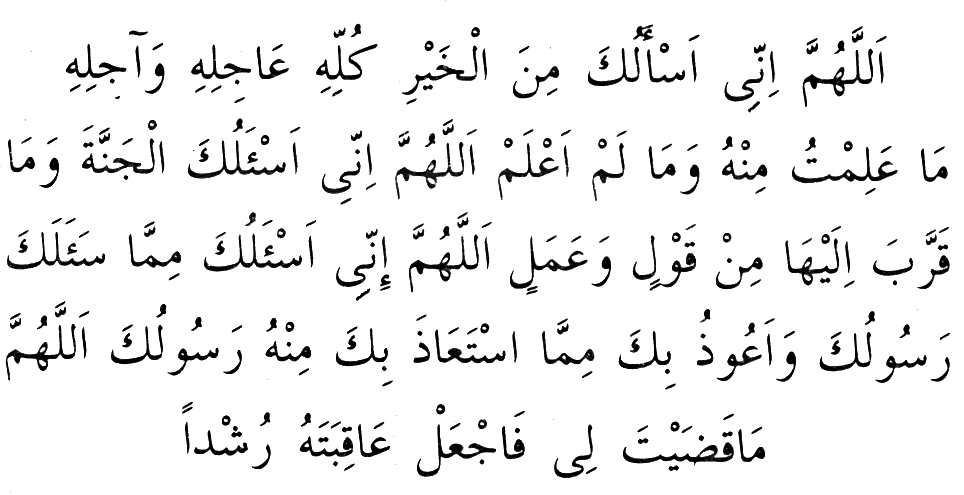 اَللَّهُمَّ اِنِّى اَسْأَلُكَ مِنَ الْخَيْرِ كُلِّهِ عَاجِلِهِ وَآجِلِهِ
مَا عَلِمْتُ مِنْهُ وَمَا لَمْ اَعْلَمْ اَللَّهُمَّ اِنِّى اَسْئَلُكَ الْجَنَّةَ وَمَا
قَرَّبَ اِلَيْهَا مِنْ قَوْلٍ وَعَمَلٍ اَللَّهُمَّ إِنِّى اَسْئَلُكَ مِمَّا سَئَلَكَ
رَسُولُكَ وَاَعُوذُ بِكَ مِمَّا اسْتَعَاذَ بِكَ مِنْهُ رَسُولُكَ اَللَّهُمَّ
مَاقَضَيْتَ لِى فَاجْعَلْ عَاقِبَتَهُ رُشْداً